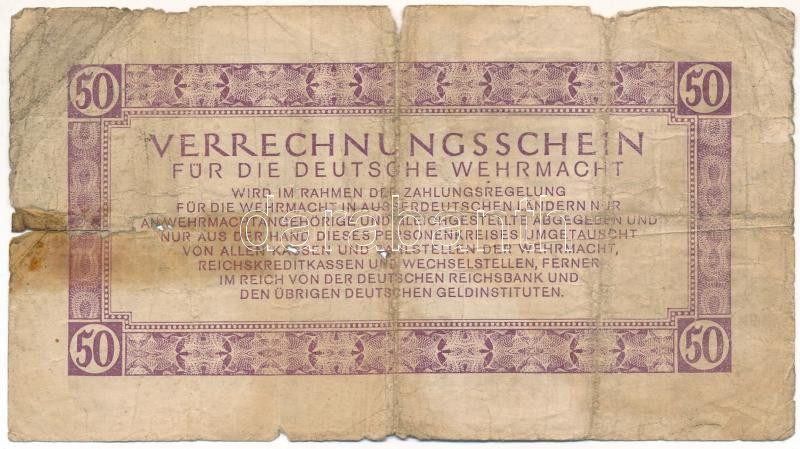 50 50
VERRECHNUNGSSCHEIN
FÜR DIE DEUTSCHE WEHRMACHT
WIRD IM RAHMEN DER ZAHLUNGSREGELUNG
FÜR DIE WEHRMACHT IN AUSSERDEUTSCHEN LÄNDERN NUR
AN WEHRMACHTANGEHÖRIGE UND GLEICHGESTELLTE ABGEGEBEN UND
NUR AUS DER HAND DIESES PERSONENKREISES UMGETAUSCHT
VON ALLEN KASSEN UND ZAHLSTELLEN DER WEHRMACHT,
REICHSKREDITKASSEN UND WECHSELSTELLEN, FERNER
IM REICH VON DER DEUTSCHEN REICHSBANK UND
DEN ÜBRIGEN DEUTSCHEN GELDINSTITUTEN.
50 50